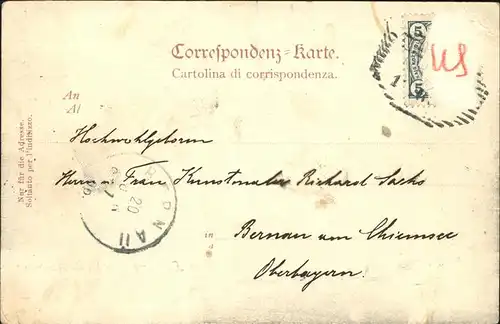 Correspondenz-Karte.
Cartolina di corrispondenza.
5
5
US
1
An
Al
Nur für die Adresse.
Soltanto per l'indirizzo.
Hochwohlgeboren
Herrn u. Frau Kunstmaler Richard Sachs
in
a
Bernau am Chiemsee
Oberbayern.
20
RNAU